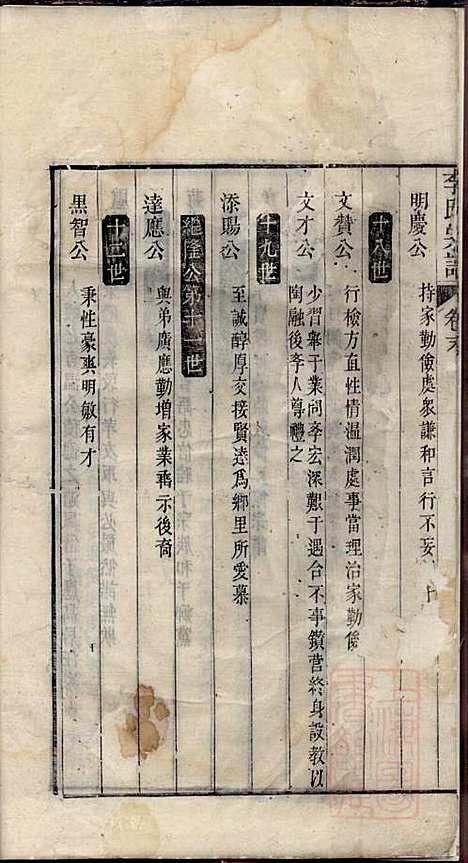 李氏宗譜 卷末
明慶公
持家勤儉處衆謙和言行不妄
十八世
文贊公
行檢方直性情温潤處事當理治家勤儉
文才公
少習舉子業問李宏深艱于遇合不事鑽营終身設教以
陶融後季人尊禮之
十九世
添賜公
至誠醇厚交接賢達爲鄉里所愛慕
繼隆公第十一世
達應公
與弟廣應勤增家業丕示後裔
十二世
黒智公
秉性豪爽明敏有才